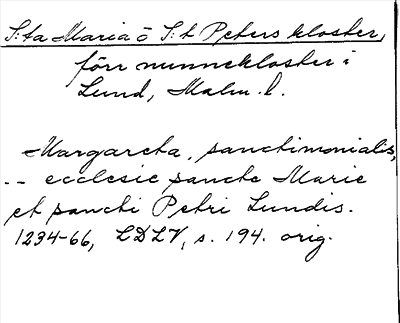 S:ta Maria o S:t Peters kloster,
förr nunnekloster i
Lund, Malm. l.
Margareta, sanctimonialis,
-- ecclesie sancte Marie
et sancti Petri Lundis.
1234-66, LDLV, s. 194. orig.